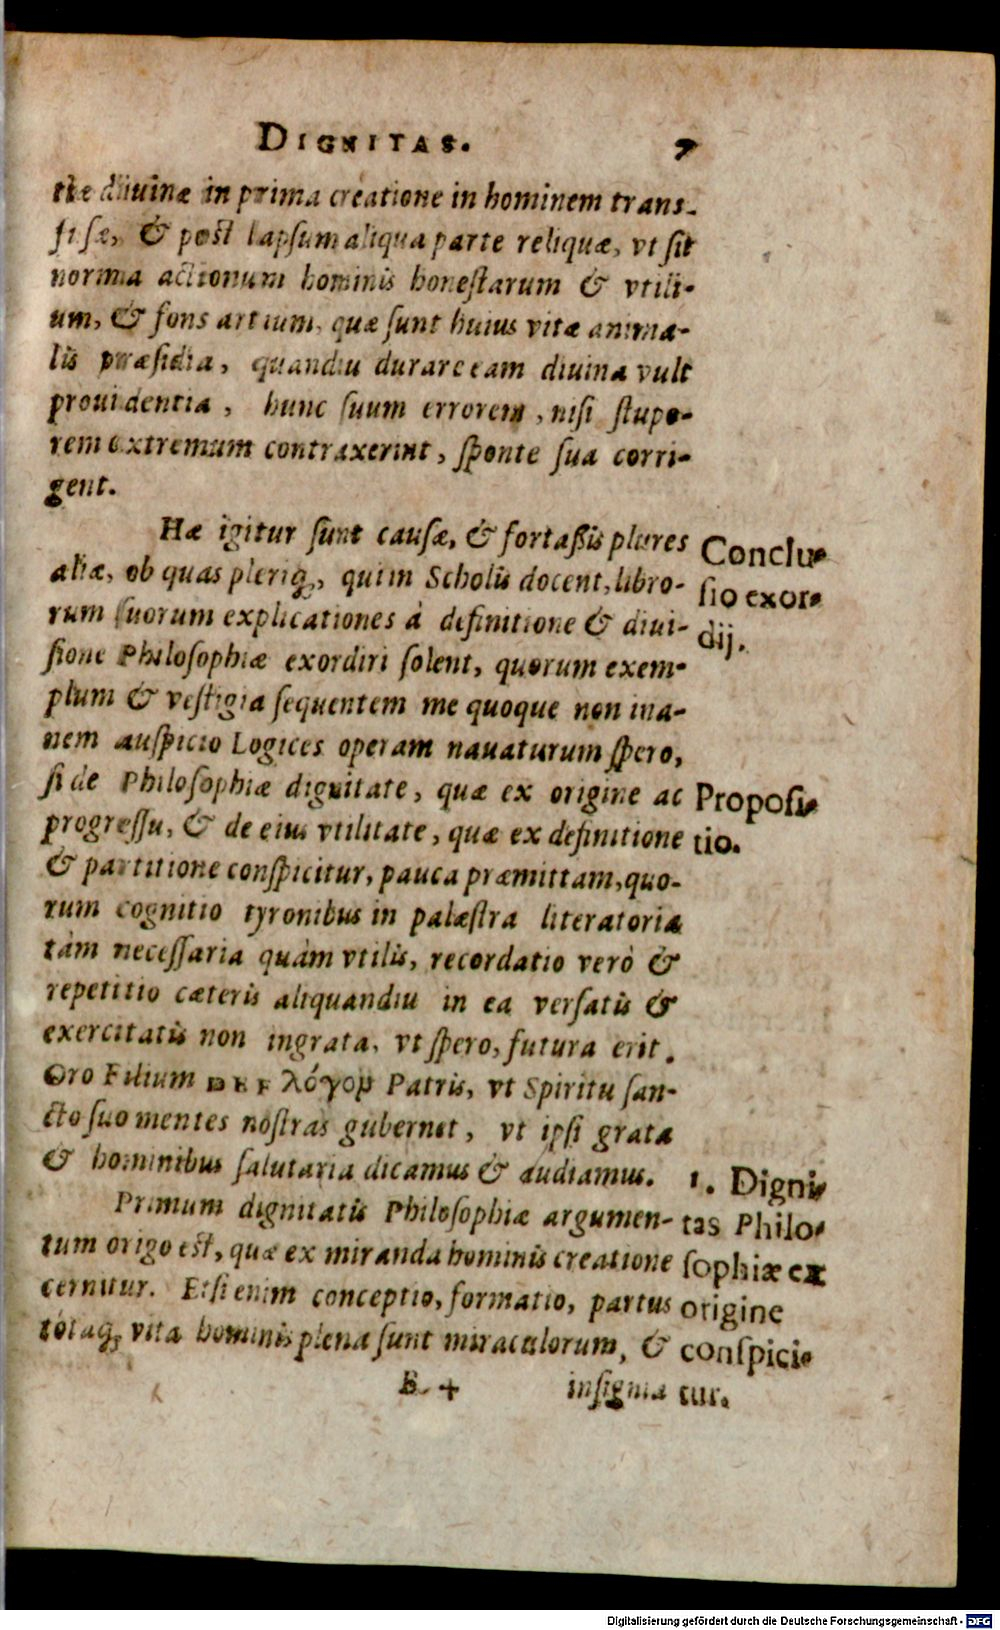 DIGNITAS. 7
tiæ diuinæ in prima creatione in hominem trans-
fusæ, & post lapsum aliqua parte reliquæ, vt sit
norma actionum hominis honestarum & vtili-
um, & fons artium, quæ sunt huius vitæ anima-
lis præsidia, quandiu durare eam diuina vult
prouidentia, hunc suum errorem, nisi stupo-
rem extremum contraxerint, sponte sua corri-
gent.
Hæ igitur sunt causæ, & fortassis plures
aliæ, ob quas pleriq;, qui in Scholis docent, libro-
rum suorum explicationes à definitione & diui-
sione Philosophiæ exordiri solent, quorum exem-
plum & vestigia sequentem me quoque non ina-
nem auspicio Logices operam nauaturum spero,
si de Philosophiæ dignitate, quæ ex origine ac
progressu, & de eius vtilitate, quæ ex definitione
& partitione conspicitur, pauca præmittam, quo-
rum cognitio tyronibus in palæstra literatoria
tàm necessaria quàm vtilis, recordatio verò &
repetitio cæteris aliquandiu in ea versatis &
exercitatis non ingrata, vt spero, futura erit.
Oro Filium DEI λόγον Patris, vt Spiritu san-
cto suo mentes nostras gubernet, vt ipsi grata
& hominibus salutaria dicamus & audiamus.
Primum dignitatis Philosophiæ argumen-
tum origo est, quæ ex miranda hominis creatione
cernitur. Etsi enim conceptio, formatio, partus
totaq; vita hominis plena sunt miraculorum, &
B 4 insignia
Conclu-
sio exor-
dij.
Proposi-
tio.
1. Digni-
tas Philo-
sophiæ ex
origine
conspici-
tur.
Digitalisierung gefördert durch die Deutsche Forschungsgemeinschaft - DFG